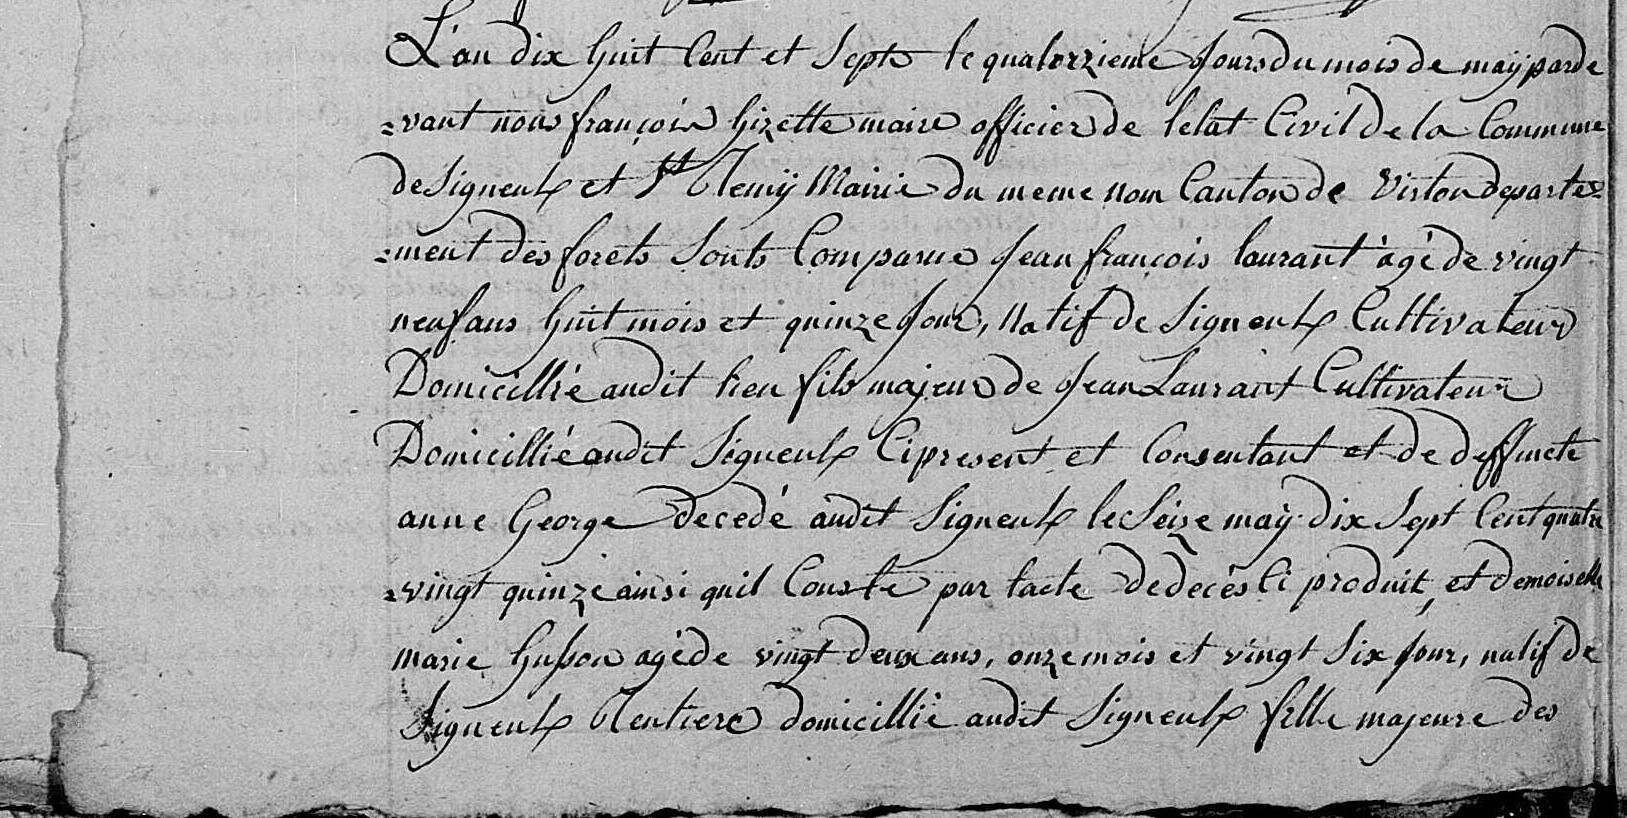 L'an dix huit Cent et Sept le quatorzieme Jours du mois de maÿ parde
=vant nous françois hizette maire officier de letat Civil De la Commune
de Signeulx et St Remÿ Mairie du meme nom Canton de Virton departe=
=ment des forets Sonts Comparue Jean françois laurant àgé de vingt
neuf ans huit mois et quinze Jour, Natif de Signeulx Cultivateur
Domicillié audit lieu fils majeur de Jean Laurant Cultivateur
Domicillié audit Signeulx Ci present et Consentant et de deffuncte
anne George decedé audit Signeulx le Seize maÿ dix Sept Cent quatre
=vingt quinze ainsi quil Conste par lacte de decès Ci produit, et demoiselle
marie husson agé de vingt deux ans, onze mois et vingt Six Jour, natif de
Signeulx Rentiere domicillié audit Signeulx fille majeure des